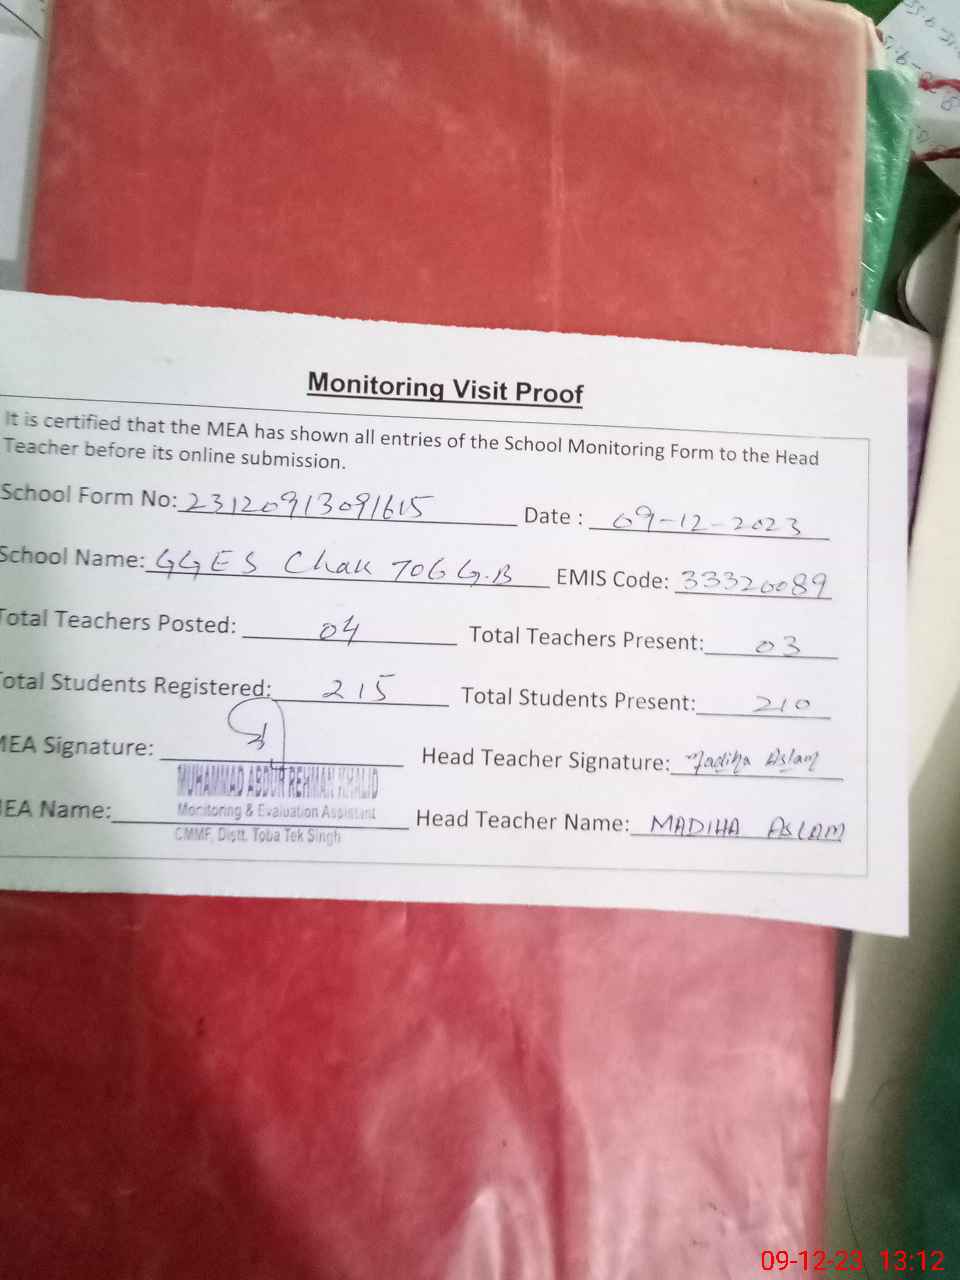 Monitoring Visit Proof
It is certified that the MEA has shown all entries of the School Monitoring Form to the Head
Teacher before its online submission.
School Form No: 23120913091615 Date : 09-12-2023
School Name: GGES Chak 706 G.B EMIS Code: 33320089
Total Teachers Posted: 04 Total Teachers Present: 03
Total Students Registered: 215 Total Students Present: 210
MEA Signature: Head Teacher Signature: Madiha Aslam
MUHAMMAD ABDUR REHMAN KHALID
MEA Name: Monitoring & Evaluation Assistant Head Teacher Name: MADIHA ASLAM
CMMF, Distt. Toba Tek Singh
09-12-23 13:12